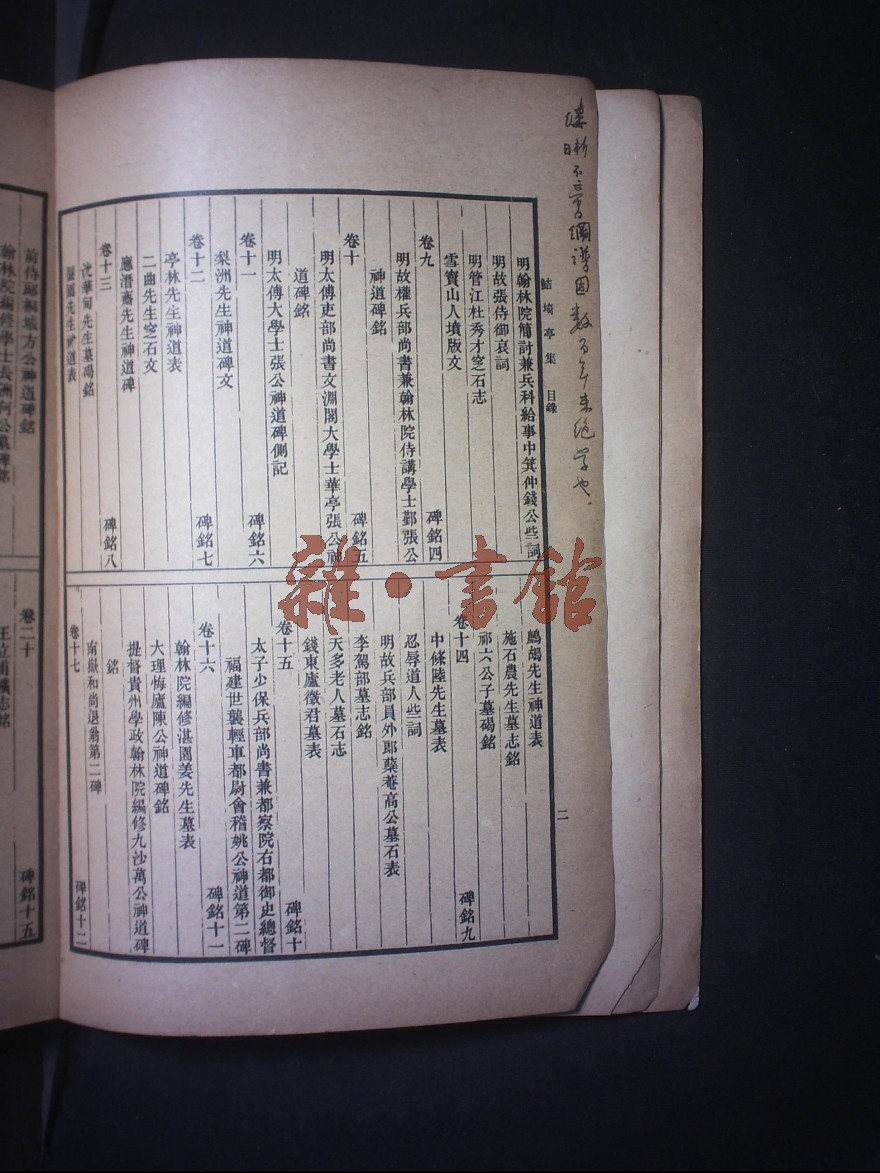 鮚埼亭集 目錄
明翰林院簡討兼兵科給事中箕仲錢公些詞
明故張侍御哀詞
明管江杜秀才窆石志
雪竇山人墳版文
卷九 碑銘四
明故權兵部尚書兼翰林院侍講學士鄞張公
神道碑銘
卷十 碑銘五
明太傅吏部尚書文淵閣大學士華亭張公神
道碑銘
明太傅大學士張公神道碑側記
卷十一 碑銘六
梨洲先生神道碑文
卷十二 碑銘七
亭林先生神道表
二曲先生窆石文
應潛齋先生神道碑
卷十三 碑銘八
沈華甸先生墓碣銘
蜃園先生神道表
鷓鴣先生神道表
施石農先生墓志銘
祁六公子墓碣銘
卷十四 碑銘九
中條陸先生墓表
忍辱道人些詞
明故兵部員外郎蘗菴高公墓石表
李駕部墓志銘
天多老人墓石志
錢東廬徵君墓表
卷十五 碑銘十
太子少保兵部尚書兼都察院右都御史總督
福建世襲輕車都尉會稽姚公神道第二碑
卷十六 碑銘十一
翰林院編修湛園姜先生墓表
大理悔廬陳公神道碑銘
提督貴州學政翰林院編修九沙萬公神道碑
銘
南嶽和尚退翁第二碑
卷十七 碑銘十二
二
前侍郎桐城方公神道碑銘
翰林院編修學士長洲何公墓碑銘
卷二十 碑銘十五
王立甫壙志銘
數百年來絕學也
雜·書館